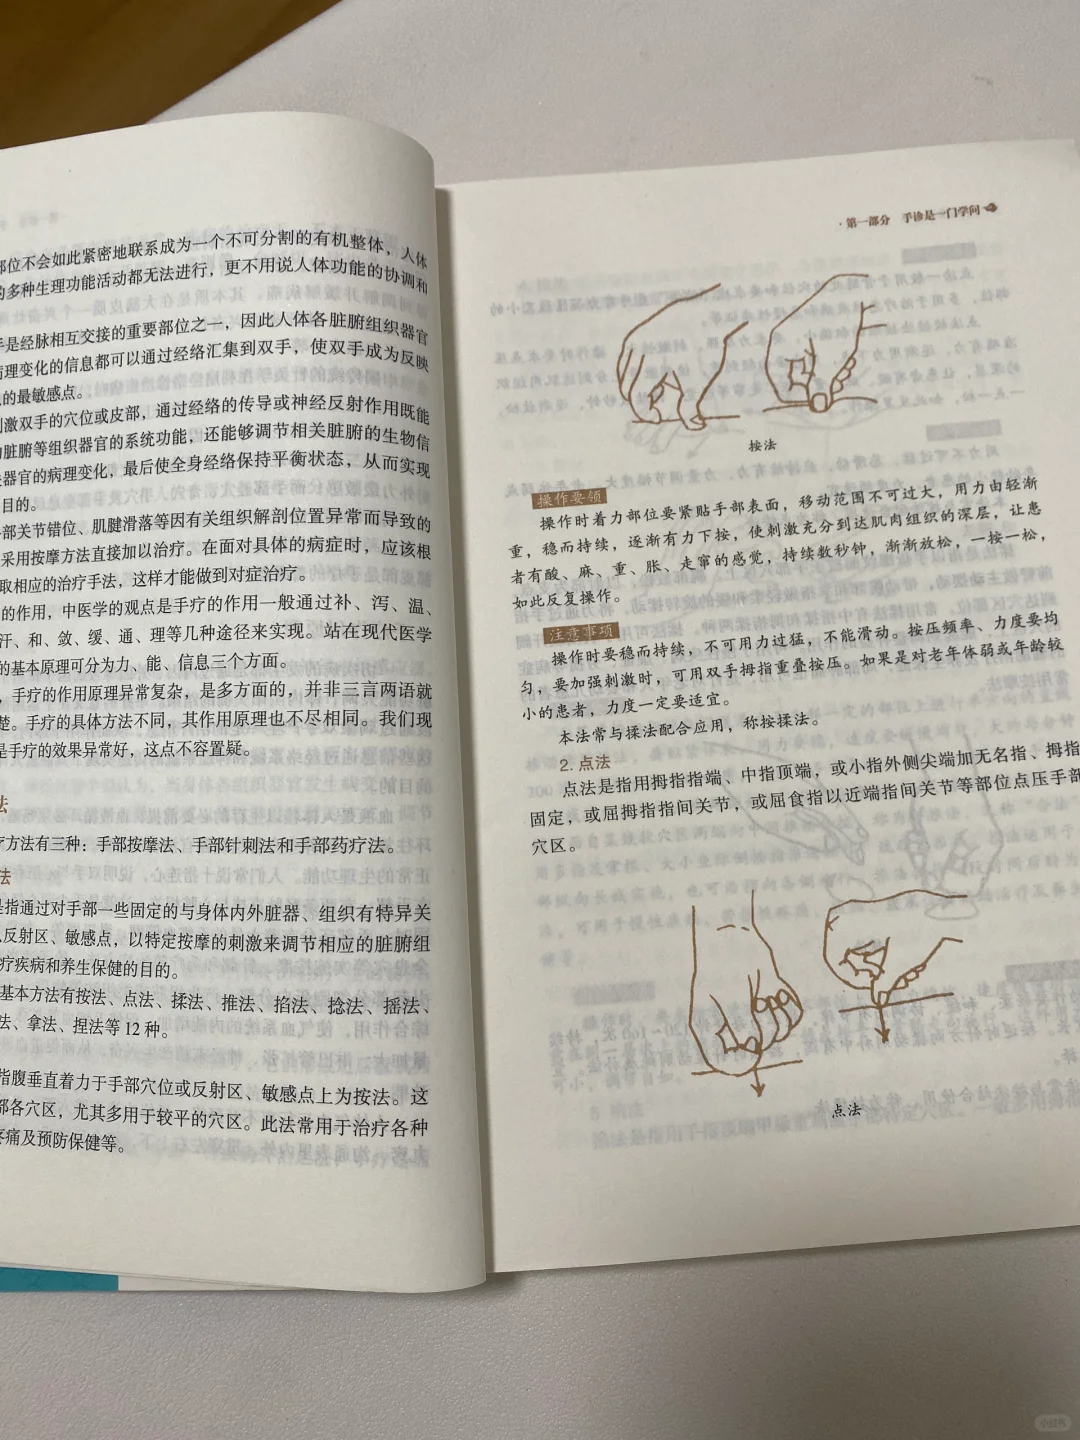 部位不会如此紧密地联系成为一个不可分割的有机整体，人体
的多种生理功能活动都无法进行，更不用说人体功能的协调和
手是经脉相互交接的重要部位之一，因此人体各脏腑组织器官
病理变化的信息都可以通过经络汇集到双手，使双手成为反映
的最敏感点。
刺激双手的穴位或皮部，通过经络的传导或神经反射作用既能
脏腑等组织器官的系统功能，还能够调节相关脏腑的生物信
器官的病理变化，最后使全身经络保持平衡状态，从而实现
目的。
部关节错位、肌腱滑落等因有关组织解剖位置异常而导致的
采用按摩方法直接加以治疗。在面对具体的病症时，应该根
取相应的治疗手法，这样才能做到对症治疗。
的作用，中医学的观点是手疗的作用一般通过补、泻、温、
汗、和、敛、缓、通、理等几种途径来实现。站在现代医学
的基本原理可分为力、能、信息三个方面。
，手疗的作用原理异常复杂，是多方面的，并非三言两语就
楚。手疗的具体方法不同，其作用原理也不尽相同。我们现
是手疗的效果异常好，这点不容置疑。
法
疗方法有三种：手部按摩法、手部针刺法和手部药疗法。
法
是指通过对手部一些固定的与身体内外脏器、组织有特异关
反射区、敏感点，以特定按摩的刺激来调节相应的脏腑组
疗疾病和养生保健的目的。
基本方法有按法、点法、揉法、推法、掐法、捻法、摇法、
法、拿法、捏法等 12 种。
指腹垂直着力于手部穴位或反射区、敏感点上为按法。这
部各穴区，尤其多用于较平的穴区。此法常用于治疗各种
疼痛及预防保健等。
·第一部分 手诊是一门学问
按法
操作要领
操作时着力部位要紧贴手部表面，移动范围不可过大，用力由轻渐
重，稳而持续，逐渐有力下按，使刺激充分到达肌肉组织的深层，让患
者有酸、麻、重、胀、走窜的感觉，持续数秒钟，渐渐放松，一按一松，
如此反复操作。
注意事项
操作时要稳而持续，不可用力过猛，不能滑动。按压频率、力度要均
匀，要加强刺激时，可用双手拇指重叠按压。如果是对老年体弱或年龄较
小的患者，力度一定要适宜。
本法常与揉法配合应用，称按揉法。
2. 点法
点法是指用拇指指端、中指顶端，或小指外侧尖端加无名指、拇指
固定，或屈拇指指间关节，或屈食指以近端指间关节等部位点压手部
穴区。
点法
小红书